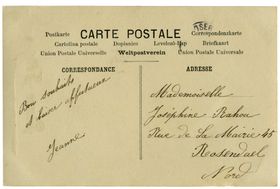 ASER
Postkarte CARTE POSTALE Correspondenzkarte
Cartolina postale Dopisnice Levelező-Lap Briefkaart
Union Postale Universelle Weltpostverein Union Postale Universelle
CORRESPONDANCE
Bons souhaits
et baisers affectueux
Jeanne
ADRESSE
Mademoiselle
Joséphine Rahou
Rue de La Mairie 45
Rosendael
Nord